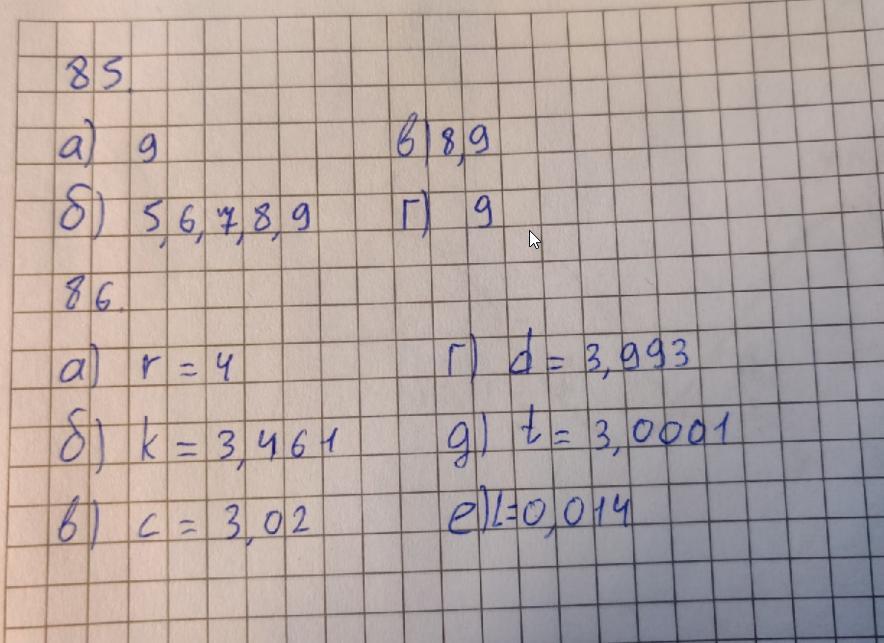 85.
а) 9 в) 8,9
б) 5,6,7,8,9 г) 9
86.
а) r = 4 г) d = 3,993
б) k = 3,461 д) t = 3,0001
в) c = 3,02 е) l=0,014